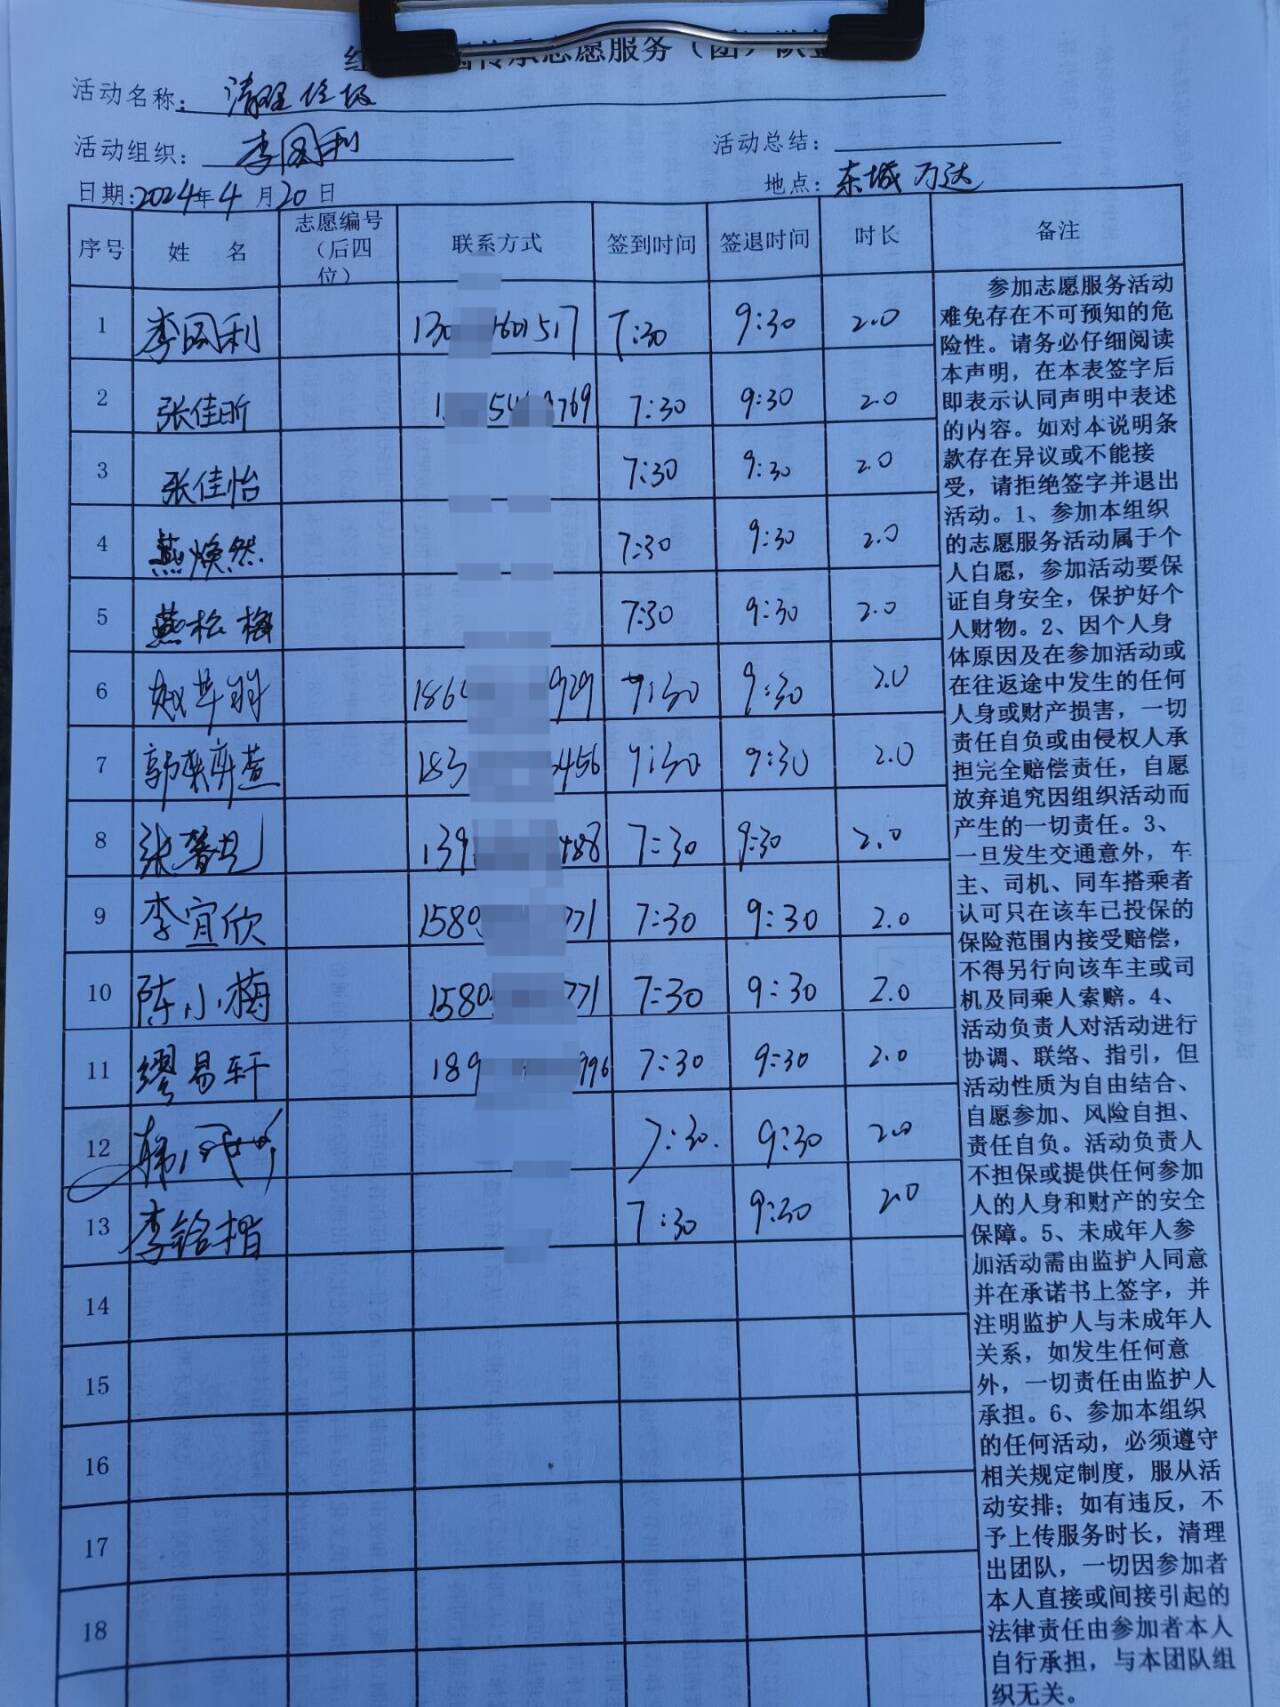 传承志愿服务（团）队签
活动名称：清理垃圾
活动组织：李国利 活动总结：
日期：2024年4月20日 地点：东城万达
序号 姓 名 志愿编号（后四位） 联系方式 签到时间 签退时间 时长 备注
1 李国利 130 1601517 7:30 9:30 2.0
2 张佳昕 1 54 769 7:30 9:30 2.0
3 张佳怡 7:30 9:30 2.0
4 燕焕然 7:30 9:30 2.0
5 燕松梅 7:30 9:30 2.0
6 186 929 7:30 9:30 2.0
7 183 456 7:30 9:30 2.0
8 139 488 7:30 9:30 2.0
9 李宜欣 1580 771 7:30 9:30 2.0
10 陈小梅 1580 771 7:30 9:30 2.0
11 缪易轩 189 796 7:30 9:30 2.0
12 7:30 9:30 2.0
13 李 楷 7:30 9:30 2.0
14
15
16
17
18
参加志愿服务活动
难免存在不可预知的危
险性。请务必仔细阅读
本声明，在本表签字后
即表示认同声明中表述
的内容。如对本说明条
款存在异议或不能接
受，请拒绝签字并退出
活动。1、参加本组织
的志愿服务活动属于个
人自愿，参加活动要保
证自身安全，保护好个
人财物。2、因个人身
体原因及在参加活动或
在往返途中发生的任何
人身或财产损害，一切
责任自负或由侵权人承
担完全赔偿责任，自愿
放弃追究因组织活动而
产生的一切责任。3、
一旦发生交通意外，车
主、司机、同车搭乘者
认可只在该车已投保的
保险范围内接受赔偿，
不得另行向该车主或司
机及同乘人索赔。4、
活动负责人对活动进行
协调、联络、指引，但
活动性质为自由结合、
自愿参加、风险自担、
责任自负。活动负责人
不担保或提供任何参加
人的人身和财产的安全
保障。5、未成年人参
加活动需由监护人同意
并在承诺书上签字，并
注明监护人与未成年人
关系，如发生任何意
外，一切责任由监护人
承担。6、参加本组织
的任何活动，必须遵守
相关规定制度，服从活
动安排；如有违反，不
予上传服务时长，清理
出团队，一切因参加者
本人直接或间接引起的
法律责任由参加者本人
自行承担，与本团队组
织无关。